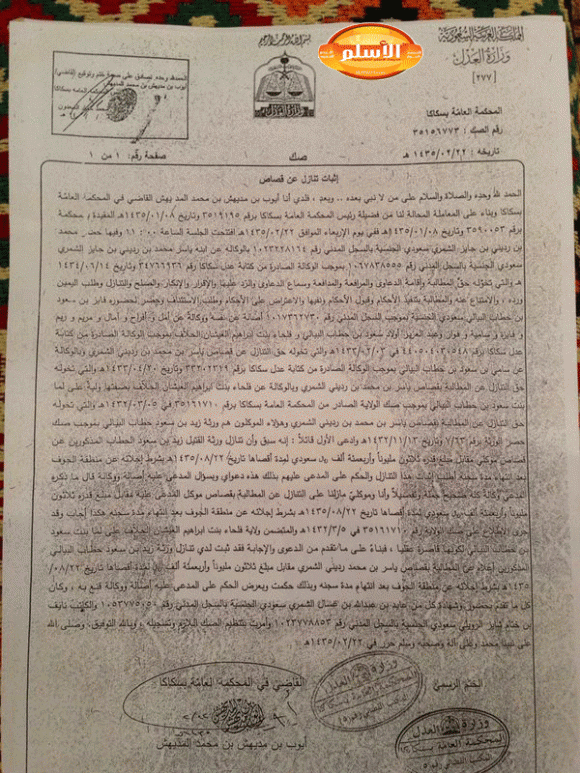 بسم الله الرحمن الرحيم
الأسلم
المملكة العربية السعودية
وزارة العدل
[٢٧٧]
المحكمة العامة بسكاكا
رقم الصك: ٣٥١٥٦٧٧٣
تاريخه: ١٤٣٥/٠٢/٢٢ هـ
صك
صفحة رقم: ١ من ١
الحمد لله وحده نصادق على صحة ختم وتوقيع القاضي/
أيوب بن مديهش بن محمد المديهش
إثبات تنازل عن قصاص
الحمد لله وحده والصلاة والسلام على من لا نبي بعده .. وبعد ، فلدي أنا أيوب بن مديهش بن محمد المديهش القاضي في المحكمة العامة
بسكاكا وبناء على المعاملة المحالة لنا من فضيلة رئيس المحكمة العامة بسكاكا برقم ٣٥١٩١٩٥ وتاريخ ١٤٣٥/٠١/٠٨هـ المقيدة بالمحكمة
برقم ٣٥٩٠٠٥٣ وتاريخ ١٤٣٥/٠١/٠٨هـ ففي يوم الإربعاء الموافق ١٤٣٥/٠٢/٢٢هـ افتتحت الجلسة الساعة ٠٠ : ١١ وفيها حضر محمد
بن رديني بن جايز الشمري سعودي الجنسية بالسجل المدني رقم ١٠٢٣٢٢٨١٦٤ بالوكالة عن ابنه ياسر محمد بن رديني بن جايز الشمري
سعودي الجنسية بالسجل المدني رقم بموجب الوكالة الصادرة من كتابة عدل سكاكا برقم ٣٤٧٦٦٩٣٦ وتاريخ ١٤٣٤/٠٦/١٤هـ
والتي تخوله حق المطالبة وإقامة الدعاوى والمرافعة والمدافعة وسماع الدعاوى والرد عليها والإقرار والإنكار والصلح والتنازل وطلب اليمين
ورده والامتناع عنه والمطالبة بتنفيذ الأحكام وقبول الأحكام ونفيها والاعتراض على الأحكام وطلب الاستئناف وحضر لحضوره فايز بن سعود
بن خطاب البيالي سعودي الجنسية بالسجل المدني رقم ١٠١٧٣٦٢٧٣٠ أصالة عن نفسه ووكالة عن أمل وأفراح و أمال و مريم و ريم
و فايزة و سامية و فواز وعبد العزيز أولاد سعود بن خطاب البيالي و فلحاء بنت ابراهيم الغيشان الخلاف بموجب الوكالة الصادرة من كتابة
عدل سكاكا برقم وتاريخ ١٤٣٣/٠٢/٠٣هـ والتي تخوله حق التنازل عن قصاص ياسر بن محمد بن رديني الشمري وبالوكالة
عن سامي بن سعود بن خطاب البيالي بموجب الوكالة الصادرة من كتابة عدل سكاكا برقم وتاريخ ١٤٣٣/٠٤/٢٠هـ والتي تخوله
حق التنازل عن المطالبة بقصاص ياسر بن محمد بن رديني الشمري وبالوكالة عن فلحاء بنت ابراهيم الغيشان الخلاف بصفتها ولية على لما
بنت سعود بن خطاب البيالي بموجب صك الولاية الصادر من المحكمة العامة بسكاكا برقم ٣٥١٦١٧١٠ وتاريخ ١٤٣٢/٠٣/٠٥هـ والتي تخوله
حق التنازل عن المطالبة بقصاص ياسر بن محمد بن رديني الشمري وهؤلاء الموكلون هم ورثة زيد بن سعود بن خطاب البيالي بموجب صك
حصر الورثة رقم ٧/٦٣ وتاريخ ١٤٣٢/١١/١٣هـ وادعى الأول قائلاً : إنه سبق وأن تنازل ورثة القتيل زيد بن سعود الخطاب المذكورين عن
قصاص موكلي مقابل مبلغ قدره ثلاثون مليوناً وأربعمئة ألف ريال سعودي لمدة أقصاها تاريخ ١٤٣٥/٠٨/٢٢هـ بشرط إجلائه عن منطقة الجوف
بعد انتهاء مدة سجنه أطلب إثبات هذا التنازل والحكم على المدعى عليهم بذلك هذه دعواي وبسؤال المدعى عليه أصالة ووكالة قال ما ذكره
المدعي وكالة كله صحيح جملة وتفصيلاً وأنا وموكلي مازلنا على التنازل عن المطالبة بقصاص موكل المدعي عليه مقابل مبلغ قدره ثلاثون
مليوناً وأربعمئة ألف ريال سعودي لمدة أقصاها تاريخ ١٤٣٥/٠٨/٢٢هـ بشرط إجلائه عن منطقة الجوف بعد انتهاء مدة سجنه هكذا أجاب وقد
جرى الاطلاع على صك الولاية رقم ٣٥١٦١٧١٠ في ١٤٣٢/٣/٥هـ والمتضمن ولاية فلحاء بنت ابراهيم الغيشان الخلاف على لما بنت سعود
بن خطاب البيالي لكونها قاصرة عقلياً ، فبناءً على ما تقدم من الدعوى والإجابة فقد ثبت لدي تنازل ورثة زيد بن سعود خطاب البيالي
المذكورين أعلاه عن المطالبة بقصاص ياسر بن محمد بن رديني الشمري مقابل مبلغ ثلاثون مليوناً وأربعمئة ألف ريال لمدة أقصاها /٠٨/٢٢
١٤٣٥هـ بشرط إجلائه عن منطقة الجوف بعد انتهاء مدة سجنه وبذلك حكمت وبعرض الحكم على المدعى عليه أصالة ووكالة قنع به ، وكان
كل ما تقدم بحضور وشهادة كل من عابد بن عبدالله بن عسال الشمري سعودي الجنسية بالسجل المدني رقم ١٠٥٣٧٧٥٠٥٤ والكاتب نايف
بن ختم شاير الرويلي سعودي الجنسية بالسجل المدني رقم ١٠٢٣٧٧٨٨٥٣ وأمرت بتنظيم الصك اللازم وتسجيله ، وبالله التوفيق، وصلى الله
على نبينا محمد وعلى آله وصحبه وسلم حرر في ١٤٣٥/٠٢/٢٢هـ
الختم الرسمي
القاضي في المحكمة العامة بسكاكا
أيوب بن مديهش بن محمد المديهش
وزارة العدل
المحكمة العامة بسكاكا
المكتب القضائي رقم ٥
وزارة العدل
المحكمة العامة بسكاكا
المكتب القضائي رقم ٥